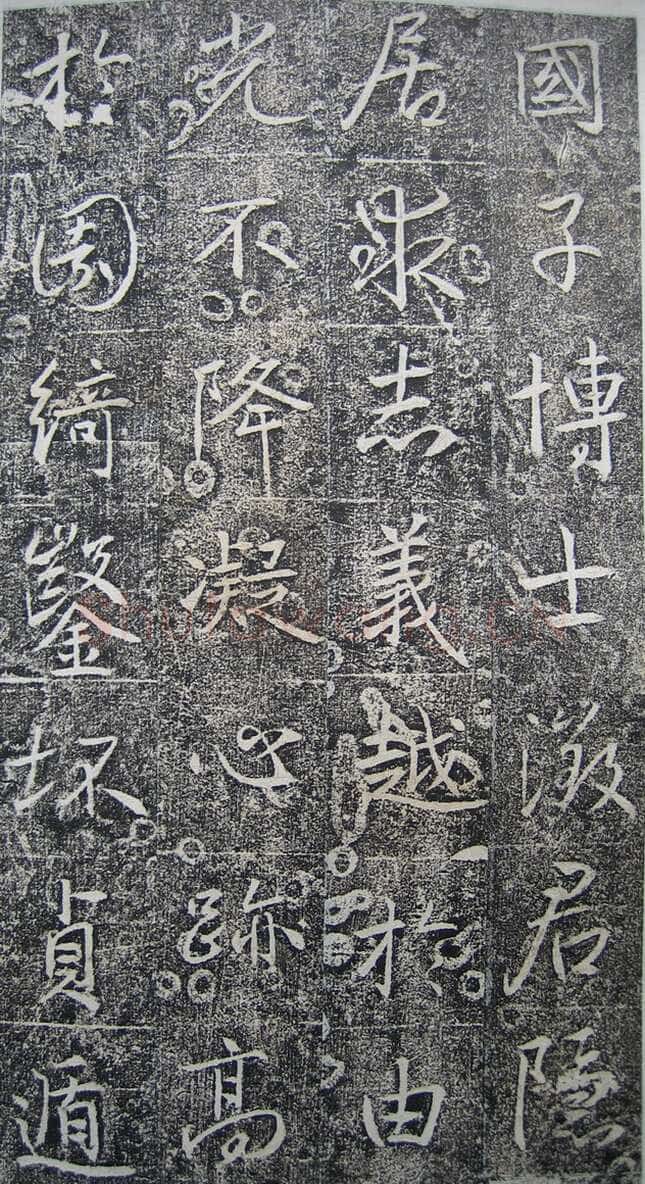 國子博士徵君隱
居求志義越於由
光不降凝心跡高
於園綺鑿坏貞遁